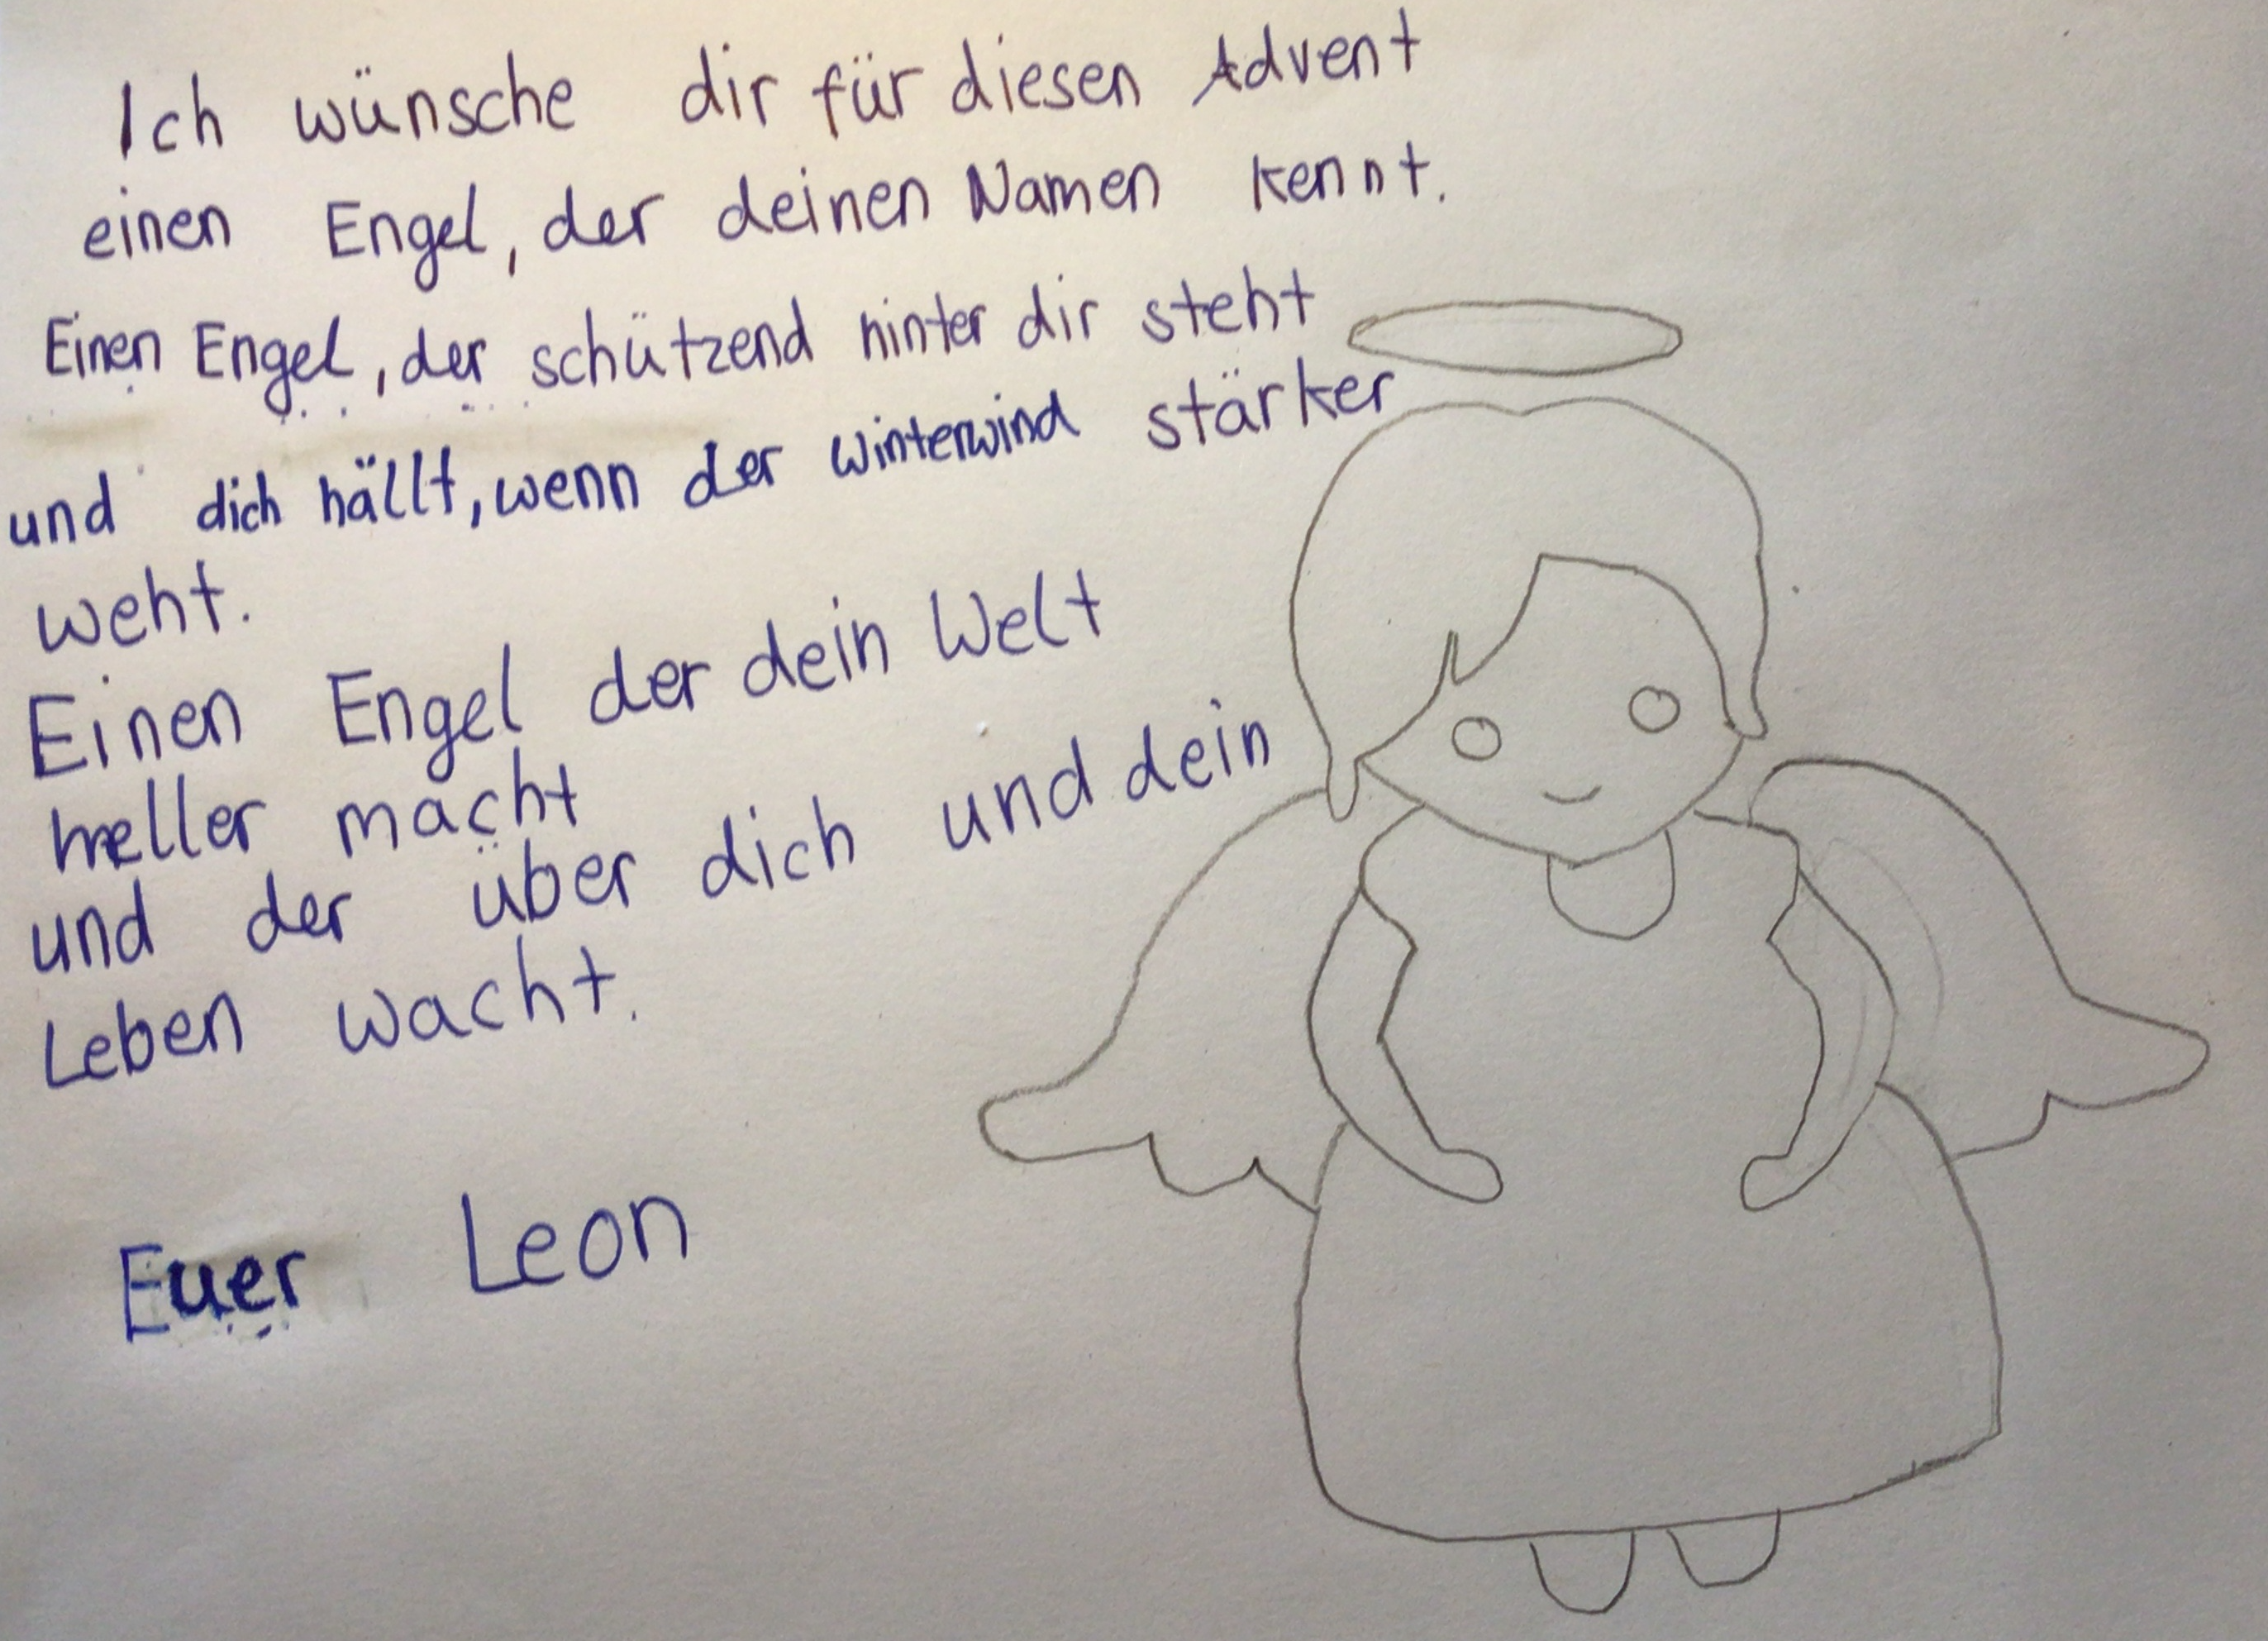 Ich wünsche dir für diesen Advent
einen Engel, der deinen Namen kennt.
Einen Engel, der schützend hinter dir steht
und dich hällt, wenn der winterwind stärker
weht.
Einen Engel der dein Welt
heller macht
und der über dich und dein
Leben wacht.
Euer Leon